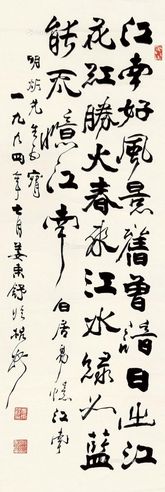 江南好風景舊曾諳日出江
花紅勝火春來江水綠如藍
能不憶江南 白居易憶江南
明 先生
一九九四年七月姜東舒於杭州